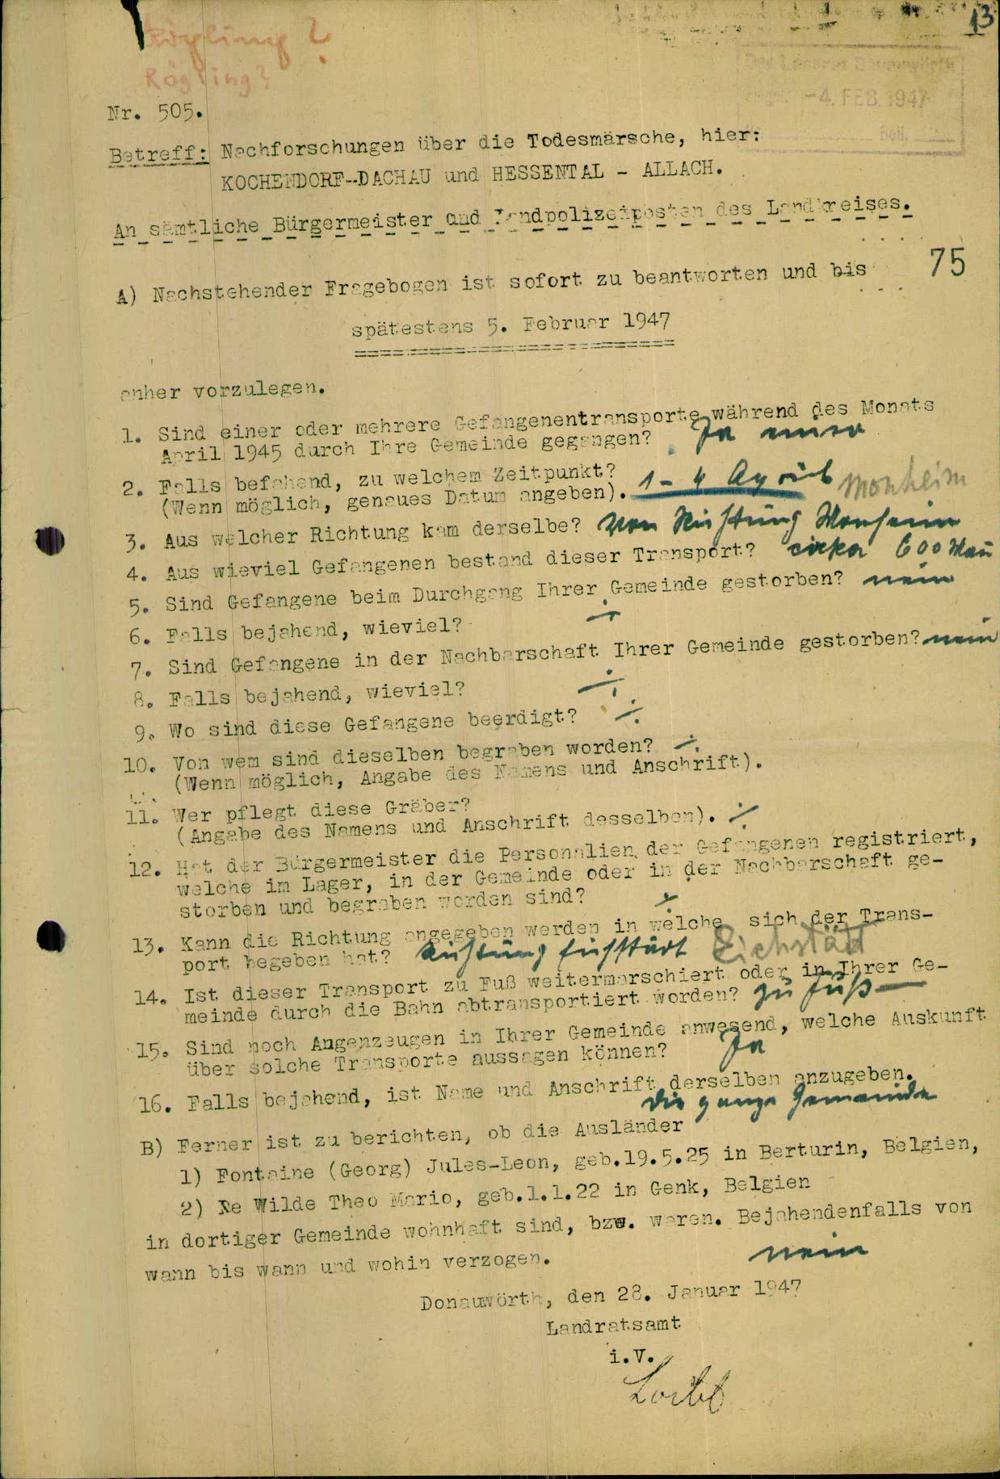 13
Rögling?
Rögling?
Der Landrat Donauwörth
-4. FEB. 1947
Beil.
Nr. 505.
Betreff: Nachforschungen über die Todesmärsche, hier:
KOCHENDORF--DACHAU und HESSENTAL - ALLACH.
An sämtliche Bürgermeister und Landpolizeiposten des Landkreises.
75
A) Nachstehender Fragebogen ist sofort zu beantworten und bis
spätestens 5. Februar 1947
anher vorzulegen.
1. Sind einer oder mehrere Gefangenentransporte während des Monats
April 1945 durch Ihre Gemeinde gegangen? Ja einer
2. Falls befahend, zu welchem Zeitpunkt?
(Wenn möglich, genaues Datum angeben). 1-4 April Monheim
3. Aus welcher Richtung kam derselbe? Von Richtung Monheim
4. Aus wieviel Gefangenen bestand dieser Transport? cirka 600 Man
5. Sind Gefangene beim Durchgang Ihrer Gemeinde gestorben? nein
6. Falls bejahend, wieviel? ./.
7. Sind Gefangene in der Nachbarschaft Ihrer Gemeinde gestorben? nein
8. Falls bejahend, wieviel? ./.
9. Wo sind diese Gefangene beerdigt? ./.
10. Von wem sind dieselben begraben worden? ./.
(Wenn möglich, Angabe des Namens und Anschrift).
11. Wer pflegt diese Gräber?
(Angabe des Namens und Anschrift desselben). ./.
12. Hat der Bürgermeister die Personalien der Gefangenen registriert,
welche im Lager, in der Gemeinde oder in der Nachbarschaft ge-
storben und begraben worden sind? ./.
13. Kann die Richtung angegeben werden in welche sich der Trans-
port begeben hat? Richtung Eichstädt Eichstätt
14. Ist dieser Transport zu Fuß weitermarschiert oder in Ihrer Ge-
meinde durch die Bahn abtransportiert worden? zu Fuß
15. Sind noch Augenzeugen in Ihrer Gemeinde anwesend, welche Auskunft
über solche Transporte aussagen können? Ja
16. Falls bejahend, ist Name und Anschrift derselben anzugeben.
die ganze Gemeinde
B) Ferner ist zu berichten, ob die Ausländer
1) Fontaine (Georg) Jules-Leon, geb.19.5.25 in Berturin, Belgien,
2) De Wilde Theo Mario, geb.1.1.22 in Genk, Belgien
in dortiger Gemeinde wohnhaft sind, bzw. waren. Bejahendenfalls von
wann bis wann und wohin verzogen. nein
Donauwörth, den 28. Januar 1947
Landratsamt
i.V.